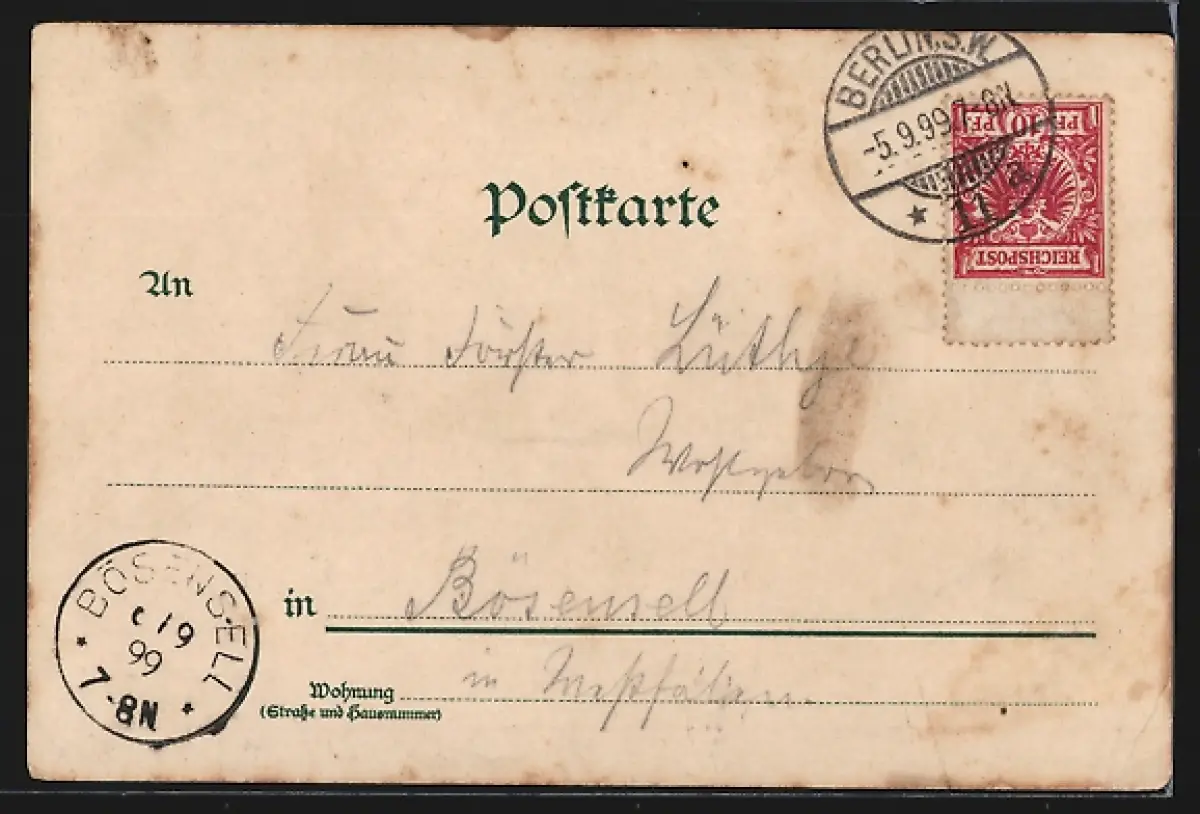 BERLIN.S.W.
-5.9.99.7-8N.
* 11 a
10 PF
PF
REICHSPOST
Postkarte
An
Frau Förster Lüthje
Wohlgeboren
in Bösensell
in Westfalen
Wohnung
(Straße und Hausnummer)
BÖSENSELL
6/9
99
7-8N